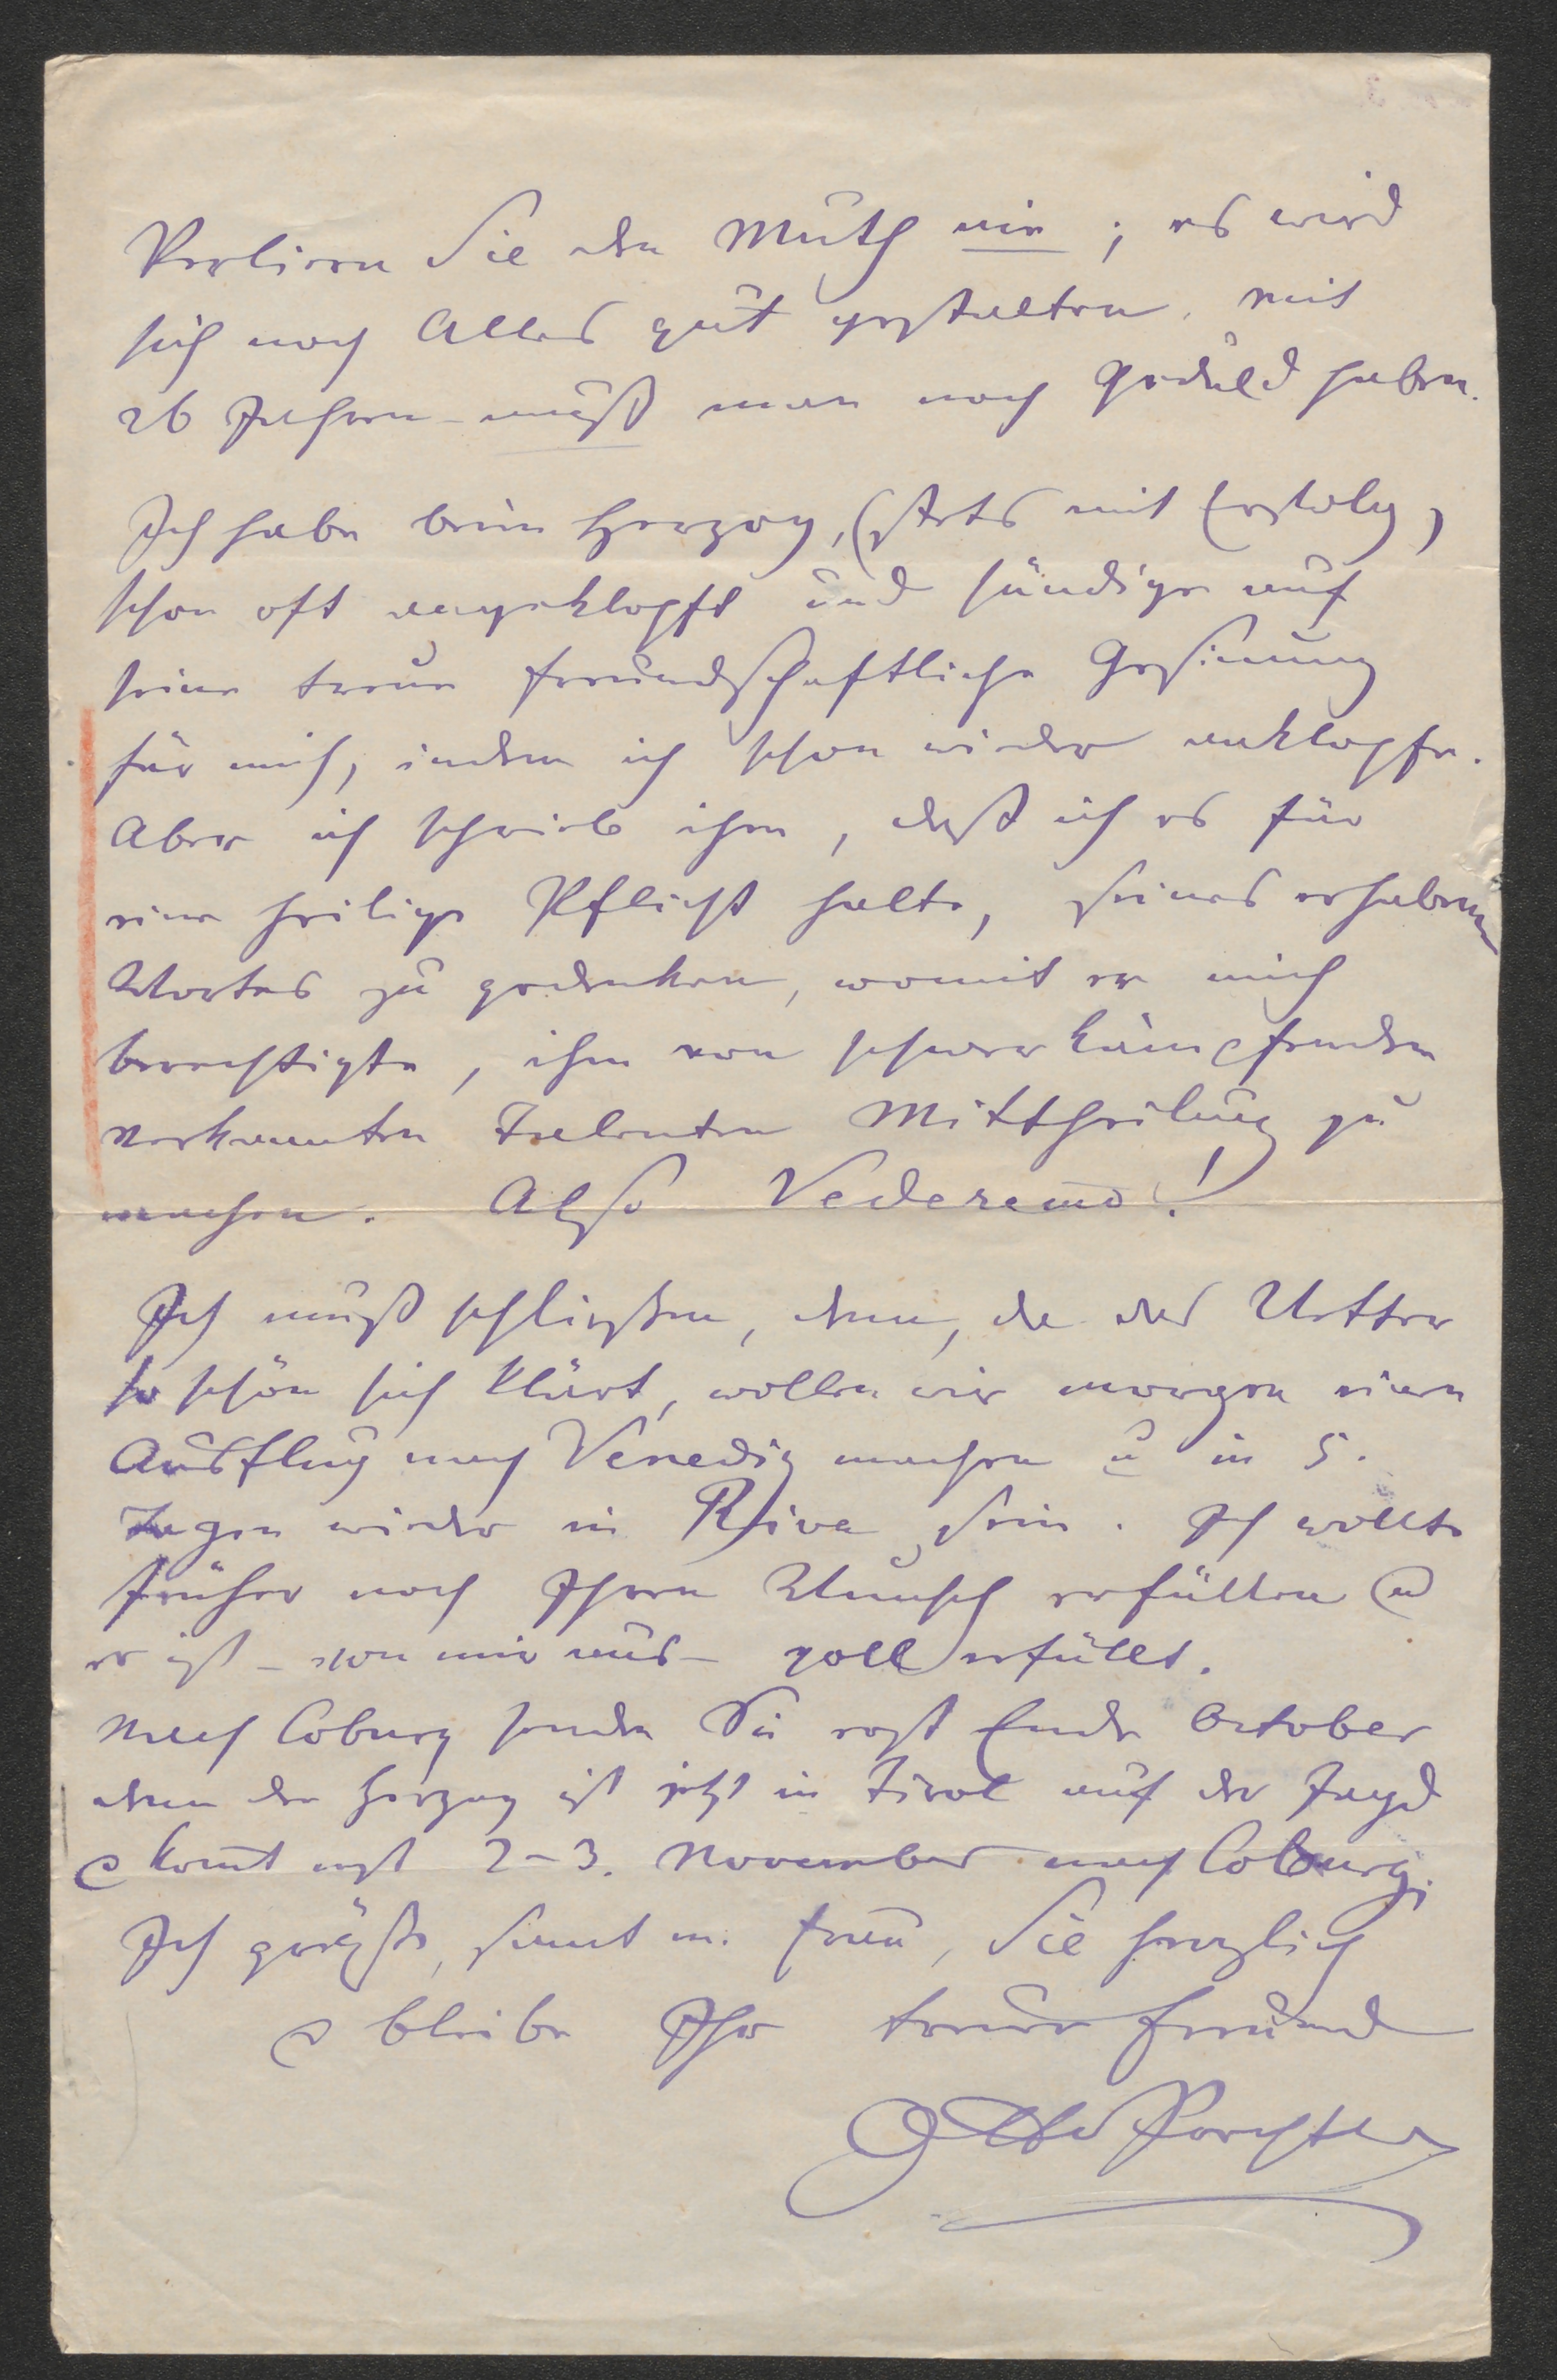 Verlieren Sie den Muth nie; es wird
sich noch Alles gut gestalten, mit
26 Jahren muß man noch Geduld haben.
Ich habe beim Herzog, (stets mit Erfolg)
schon oft angeklopft und sündige auf
seine treue freundschaftliche Gesinnung
für mich, indem ich schon wieder anklopfe.
Aber ich schrieb ihm, daß ich es für
eine heilige Pflicht halte, seines erhabenen
Wortes zu gedenken, womit er mich
berechtigte, ihm von schwer kämpfenden
verkannten Talenten Mittheilung zu
machen. Also Vederemo!
Ich muß schließen, denn, da das Wetter
so schön sich klärt, wollen wir morgen einen
Ausflug nach Venedig machen u in 5.
Tagen wieder in Riva sein. Ich wollte
früher noch Ihren Wunsch erfüllen u
er ist – von mir aus – voll erfüllt.
Nach Coburg senden Sie erst Ende October
denn der Herzog ist jetzt in Tirol auf der Jagd
u komt erst 2–3. November nach Coburg.
Ich grüße, samt m. Frau, Sie herzlich
u bleibe Ihr treuer Freund
Otto